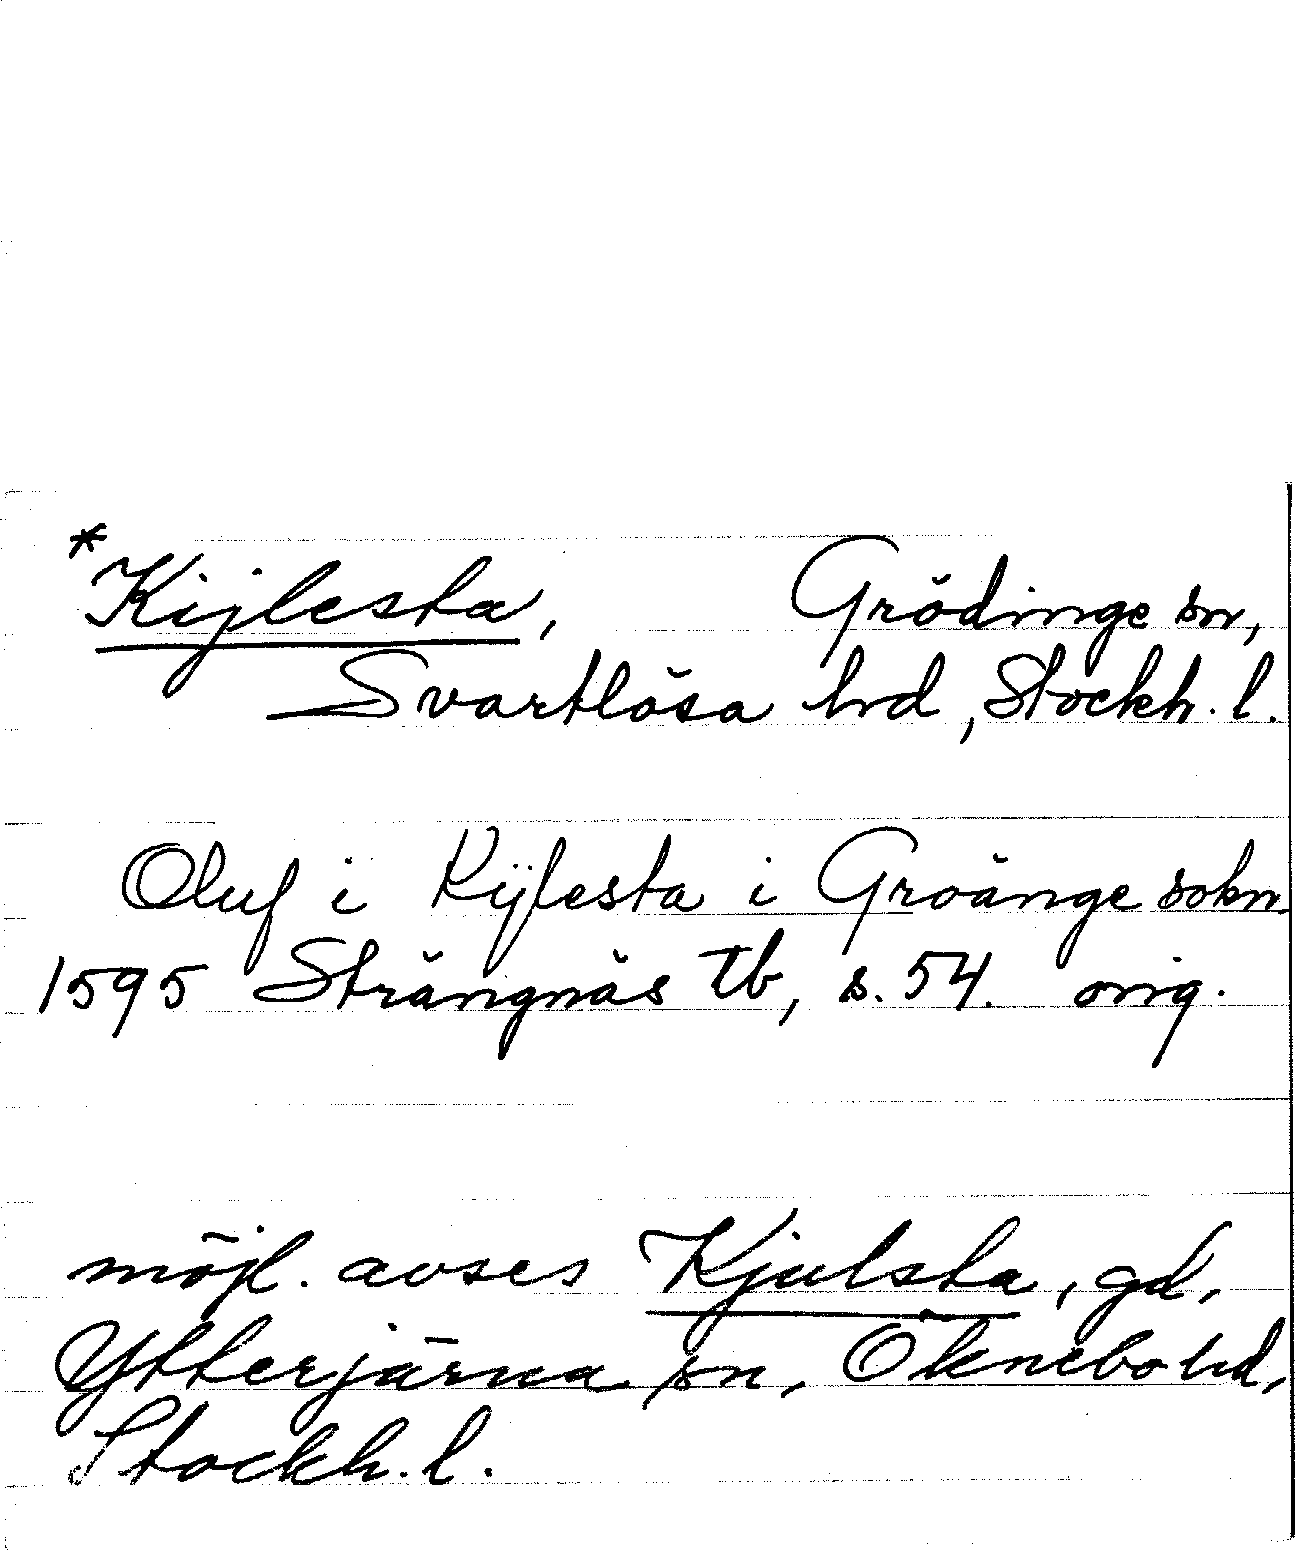 *Kijlesta, Grödinge sn,
Svartlösa hrd, Stockh. l.
Oluf i Kijlesta i Groänge sokn
1595 Strängnäs tb, s. 54. orig.
möjl. avses Kjulsta, gd,
Ytterjärna sn, Öknebo hd,
Stockh. l.